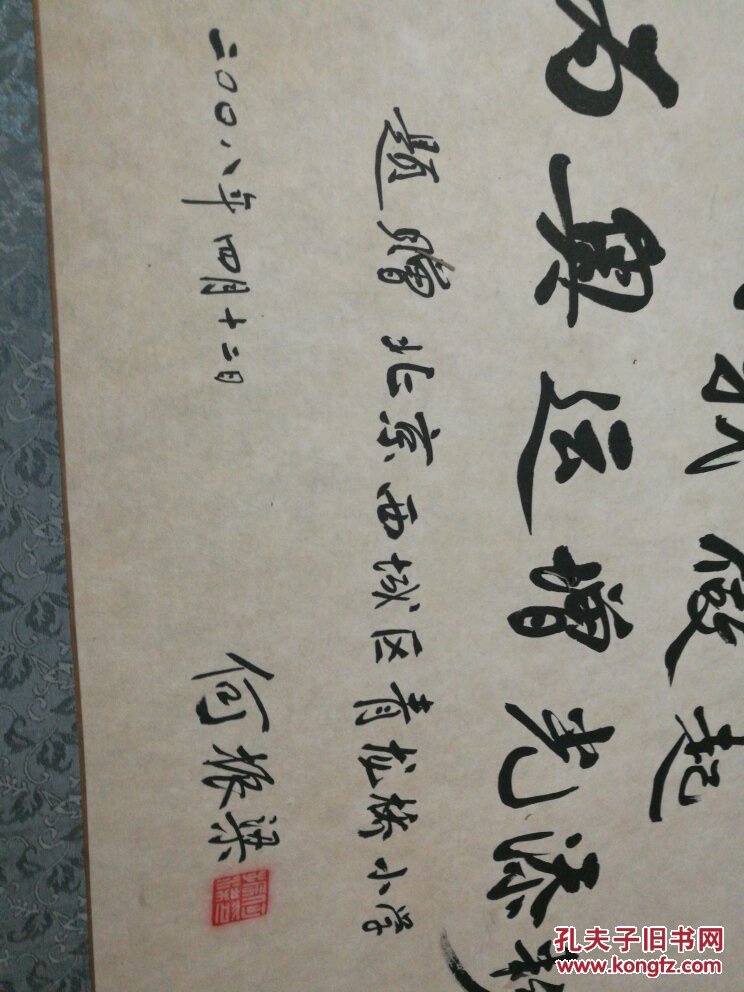 我做起
为奥运增光添
题赠北京西城区青龙桥小学
二〇〇八年四月十二日
何振梁
孔夫子旧书网
www.kongfz.com